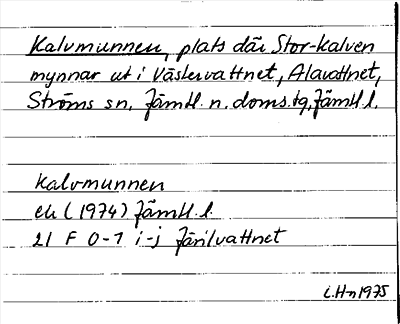 Kalvmunnen, plats där Stor-Kalven
mynnar ut i Västervattnet, Alavattnet,
Ströms sn, Jämtl. n. doms.tg, Jämtl. l.
Kalvmunnen
ek (1974) Jämtl. l.
21 F 0-1 i-j Järilvattnet
i.Hn 1975